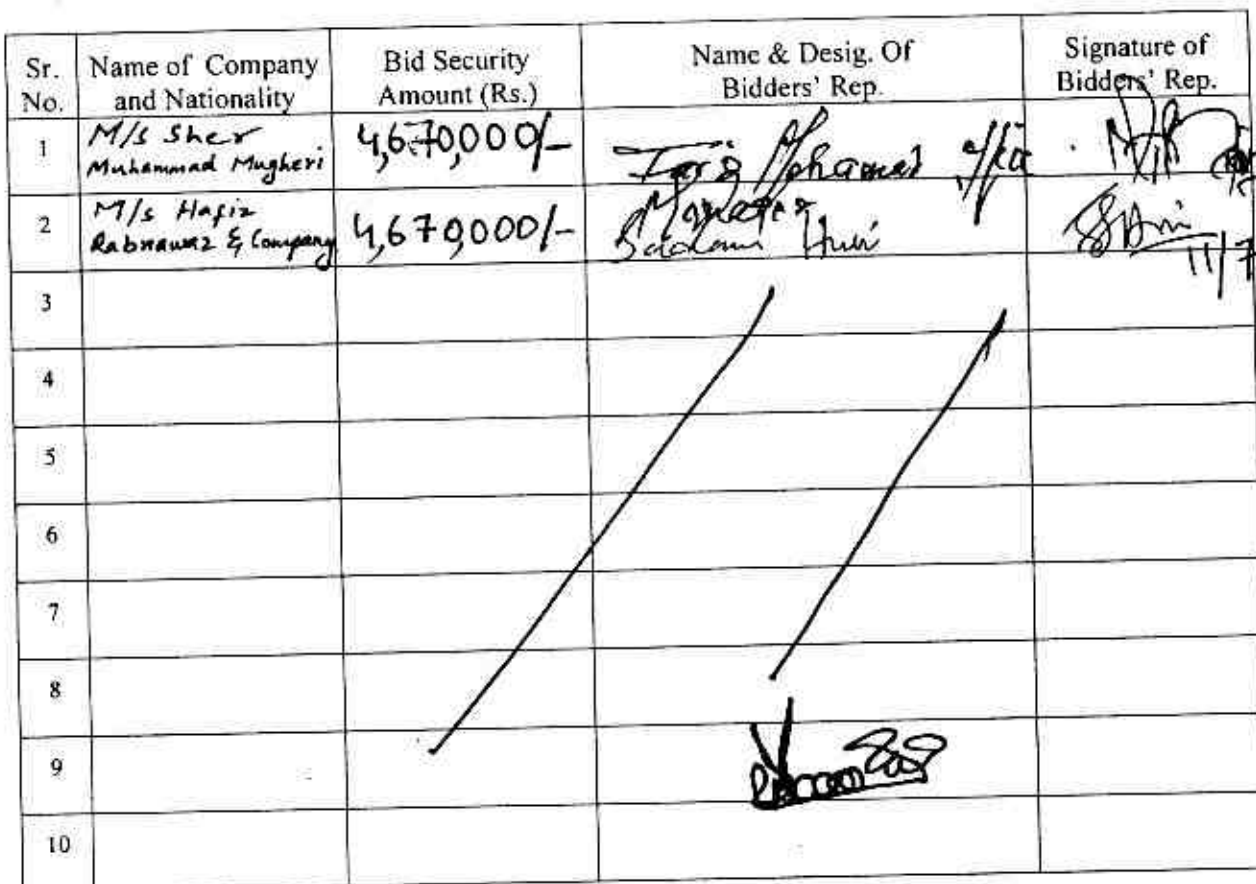 Sr. No.
Name of Company and Nationality
Bid Security Amount (Rs.)
Name & Desig. Of Bidders' Rep.
Signature of Bidders' Rep.
1
M/s Sher
Muhammad Mugheri
4,670,000/-
Mohamad
2
M/s Hafiz
Rabnawaz & Company
4,670,000/-
Manager
11/7
3
4
5
6
7
8
9
10